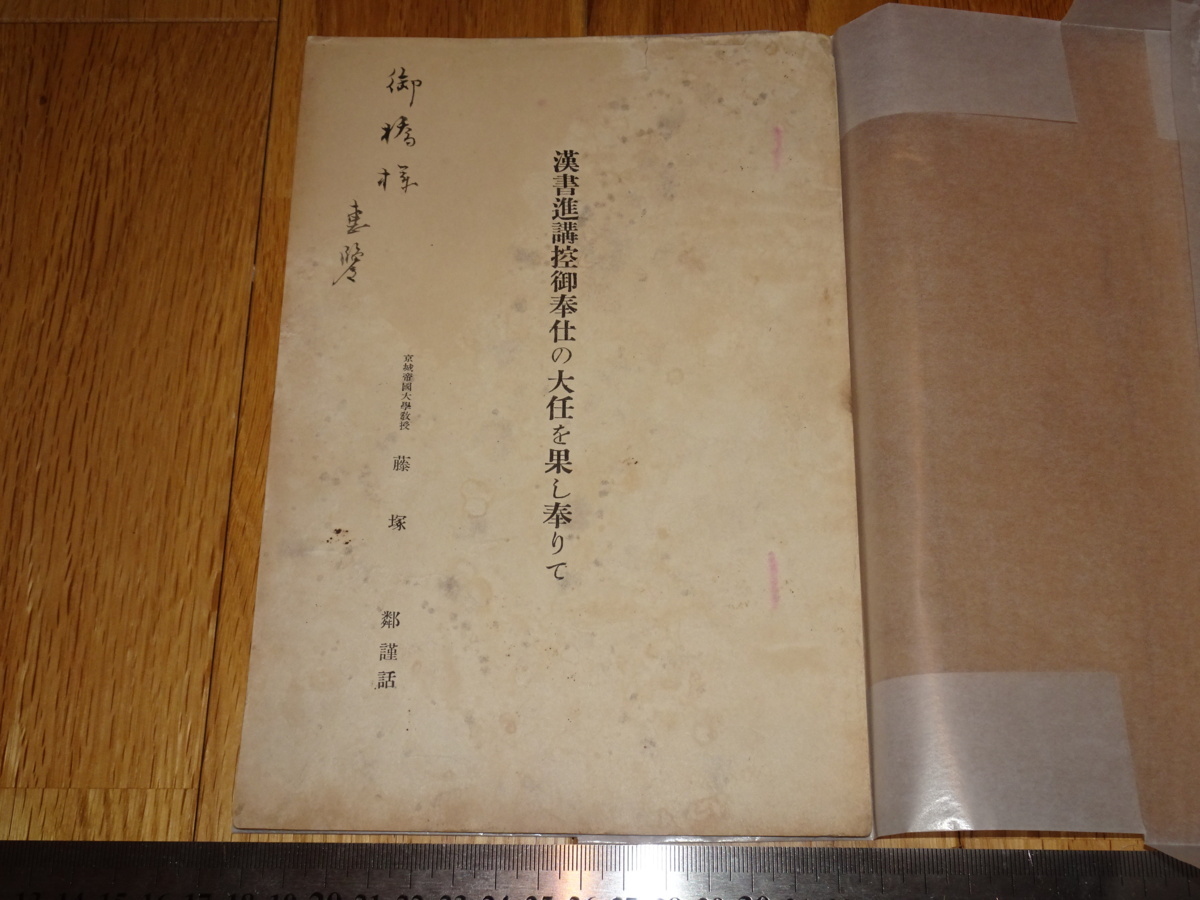 漢書進講控御奉仕の大任を果し奉りて
京城帝國大學教授 藤塚 鄰謹話
御橋様
恵鑒
13 14 15 16 17 18 19 20 21 22 23 24 25 26 27 28 29 30